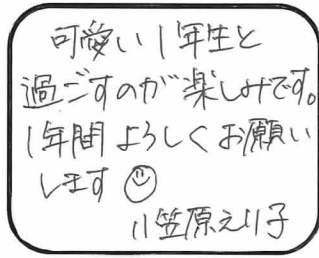 可愛い1年生と
過ごすのが楽しみです。
1年間よろしくお願い
します☺
小笠原えり子